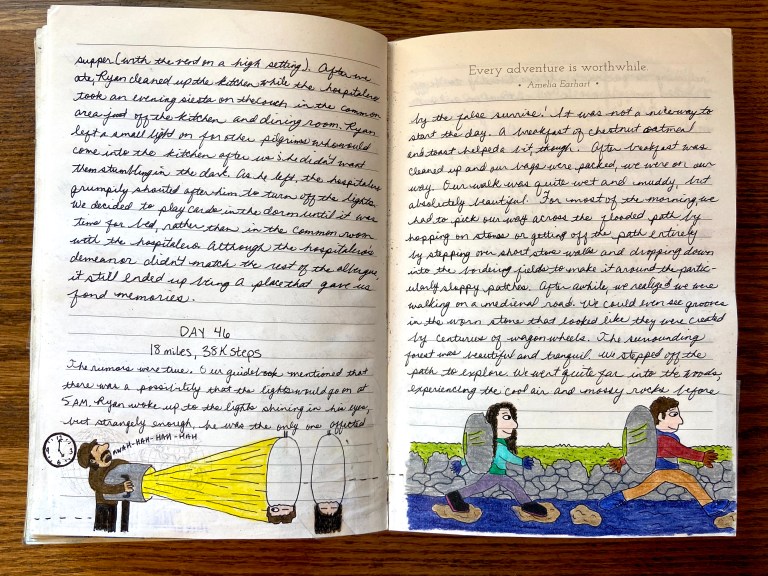 supper (with the vent on a high setting). After we
ate, Ryan cleaned up the kitchen while the hospitalero
took an evening siesta on the couch in the common
area just off the kitchen and dining room. Ryan
left a small light on for other pilgrims who would
come into the kitchen after us. He didn't want
them stumbling in the dark. As he left, the hospitalero
grumpily shouted after him to turn off the lights.
We decided to play cards in the dorm until it was
time for bed, rather than in the common room
with the hospitalero. Although the hospitalero's
demeanor didn't match the rest of the albergue,
it still ended up being a place that gave us
fond memories.
DAY 46
18 miles, 38K steps
The rumors were true. Our guidebook mentioned that
there was a possibility that the lights would go on at
5 AM. Ryan woke up to the lights shining in his eyes,
but strangely enough, he was the only one affected
MWAH-HAH-HAH-HAH
Every adventure is worthwhile.
• Amelia Earhart •
by the false sunrise! It was not a nice way to
start the day. A breakfast of chestnut oatmeal
and toast helped a bit, though. After breakfast was
cleaned up and our bags were packed, we were on our
way. Our walk was quite wet and muddy, but
absolutely beautiful. For most of the morning, we
had to pick our way across the flooded path by
hopping on stones or getting off the path entirely
by stepping over short stone walls and dropping down
into the bordering fields to make it around the partic-
ularly sloppy patches. After awhile, we realized we were
walking on a medieval road. We could even see grooves
in the worn stone that looked like they were created
by centuries of wagon wheels. The surrounding
forest was beautiful and tranquil. We stepped off the
path to explore. We went quite far into the woods,
experiencing the cool air and mossy rocks before